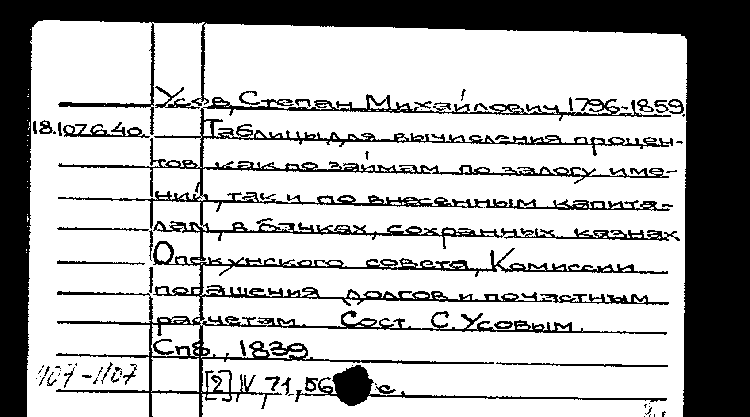 Усов, Степан Михайлович, 1796-1859
18.107.6.40. Таблицы для вычисления процен-
тов как по займам по залогу име-
ний, так и по внесенным капита-
лам, в банках, сохранных казнах
Опекунского совета, Комиссии
погашения долгов и по частным
расчетам. Сост. С. Усовым.
Спб., 1839.
107-1107 [2] IV, 71, 56 с.